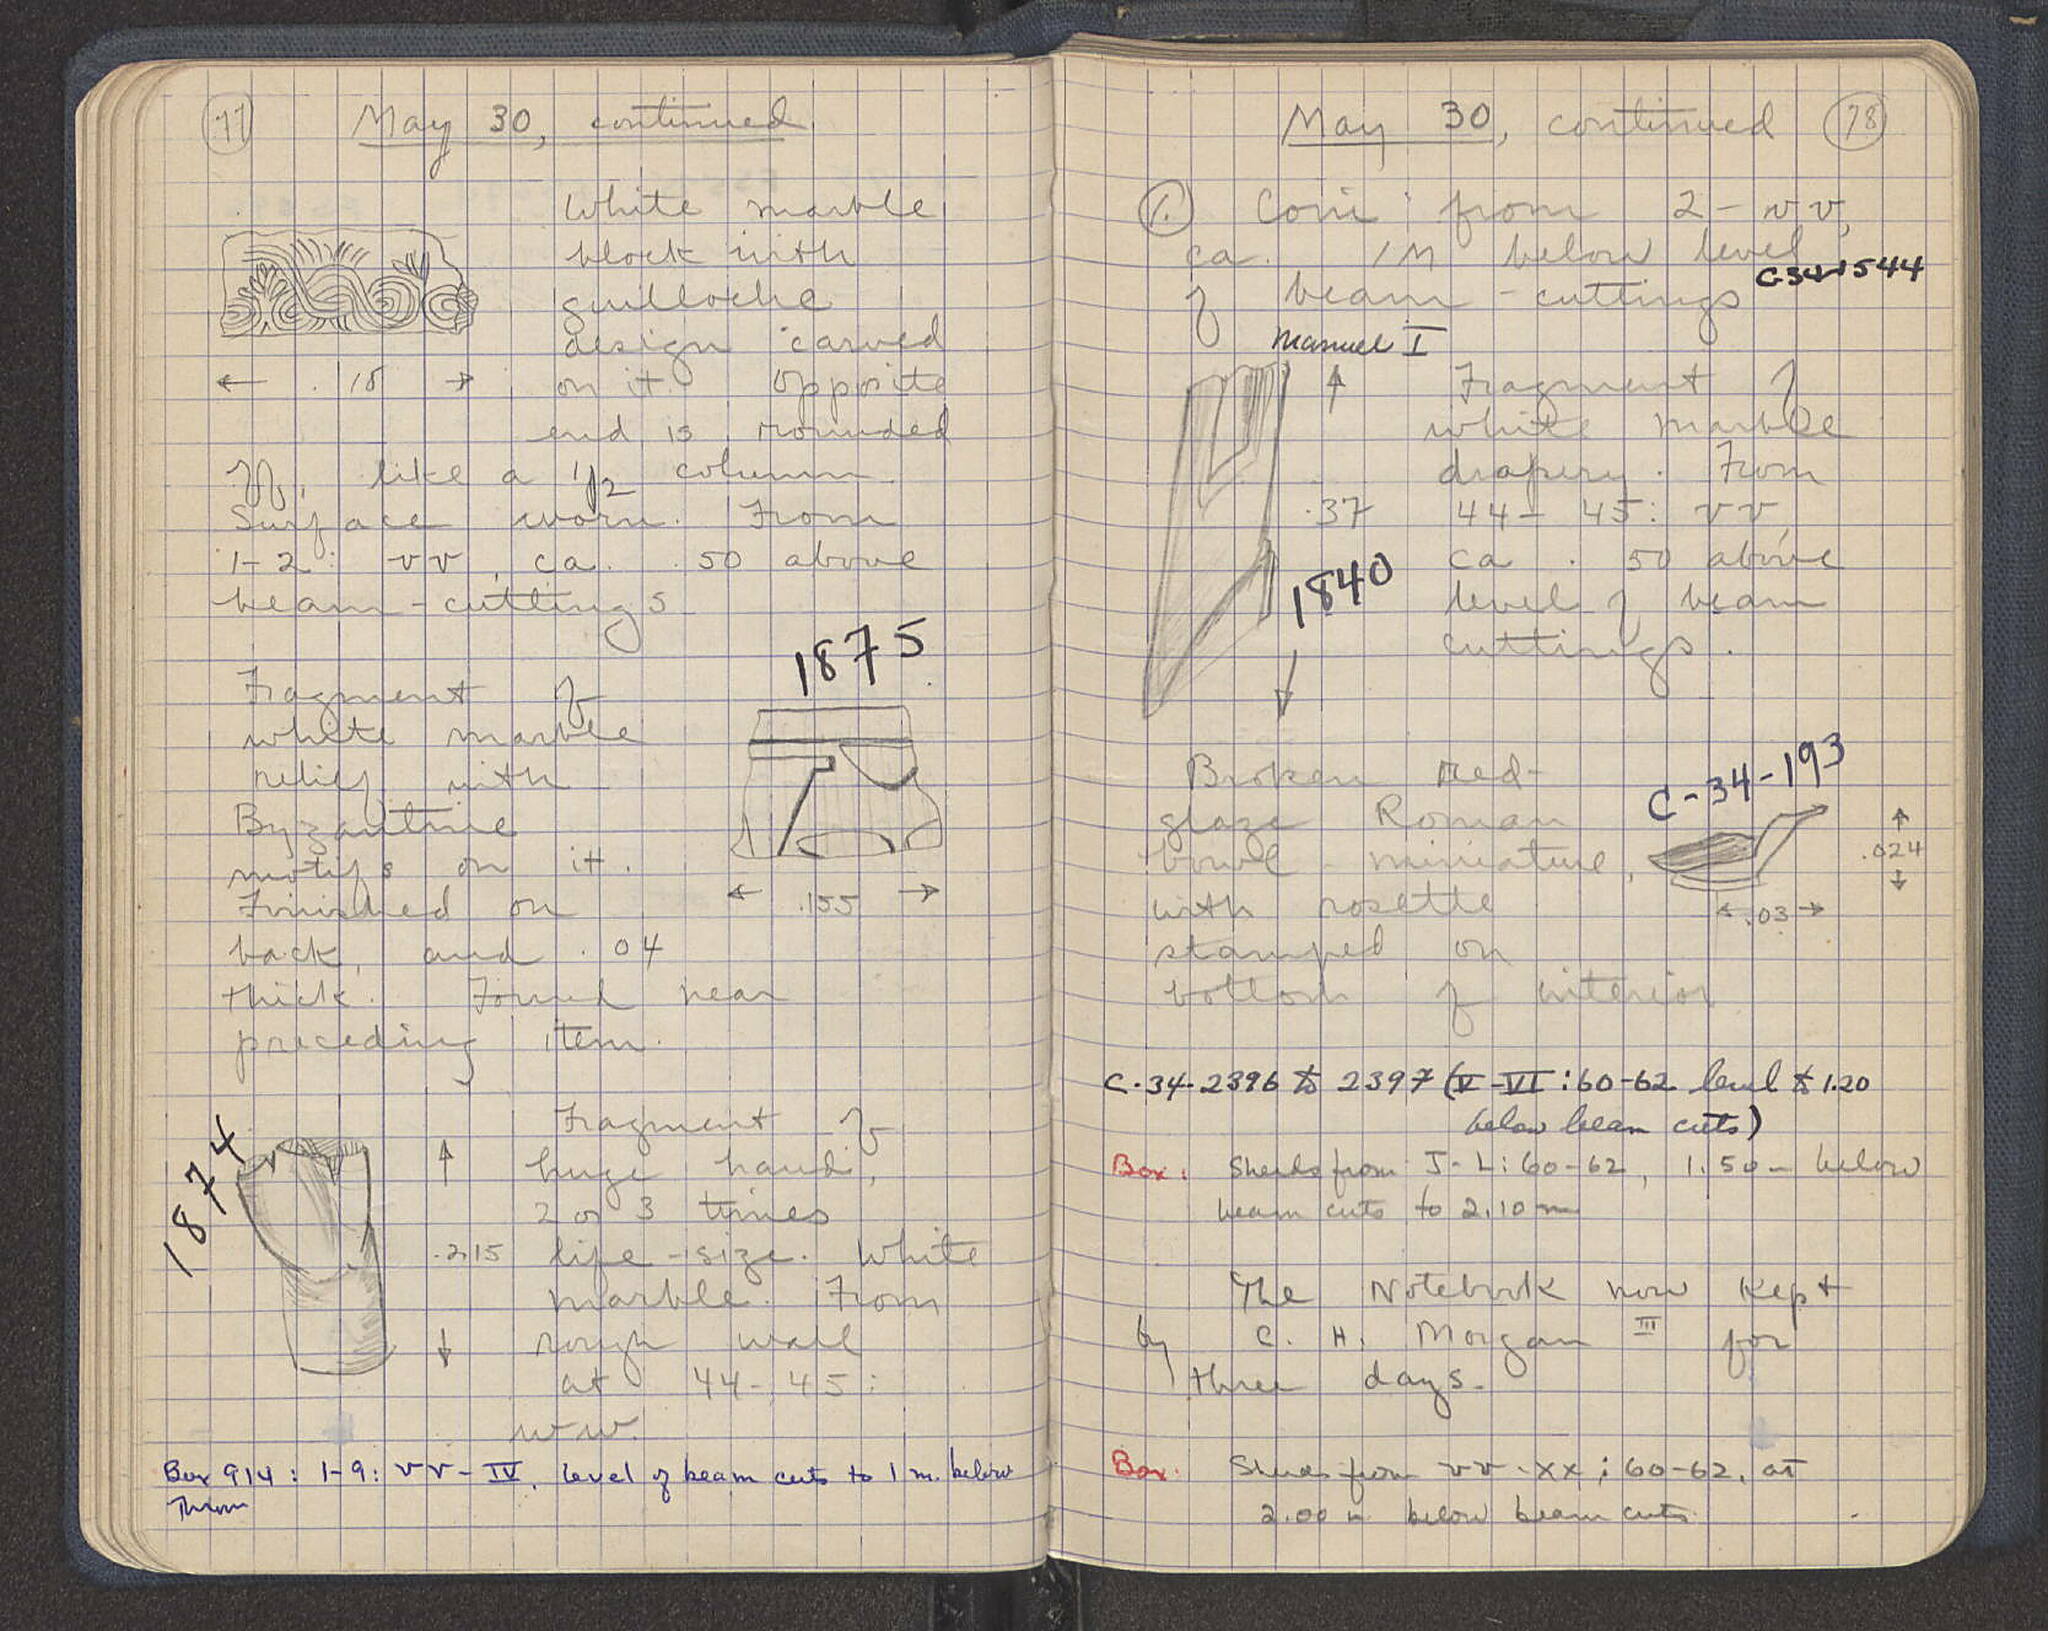 77
May 30, continued
White marble
block with
guilloche
design carved
← .18 → on it. Opposite
end is rounded
off, like a 1/2 column.
Surface worn. From
1-2: vv, ca. .50 above
beam-cuttings
1875
Fragment of
white marble
relief with
Byzantine
motifs on it.
Finished on
← .155 →
back, and .04
thick. Found near
preceding item.
1874
Fragment of
huge hand,
2 or 3 times
.215 life-size. White
marble. From
rough wall
at 44-45:
ww.
Box 914: 1-9: vv-IV, level of beam cuts to 1 m. below
them
May 30, continued 78
1. Coin from 2-vv,
ca. 1M below level
of beam-cuttings
C-34-1544
Manuel I
Fragment of
white marble
drapery. From
.37 44-45: vv,
ca. .50 above
1840
level of beam
cuttings.
Broken red-
C-34-193
glaze Roman
bowl-miniature,
.024
with rosette
← .03 →
stamped on
bottom of interior
C-34-2396 to 2397 (V-VI: 60-62 level to 1.20
below beam cuts)
Box: Sherds from J-L: 60-62, 1.50m below
beam cuts to 2.10 m
The Notebook now kept
by C. H. Morgan III for
three days.
Box: Sherds from vv-xx; 60-62, at
2.00 m below beam cuts.